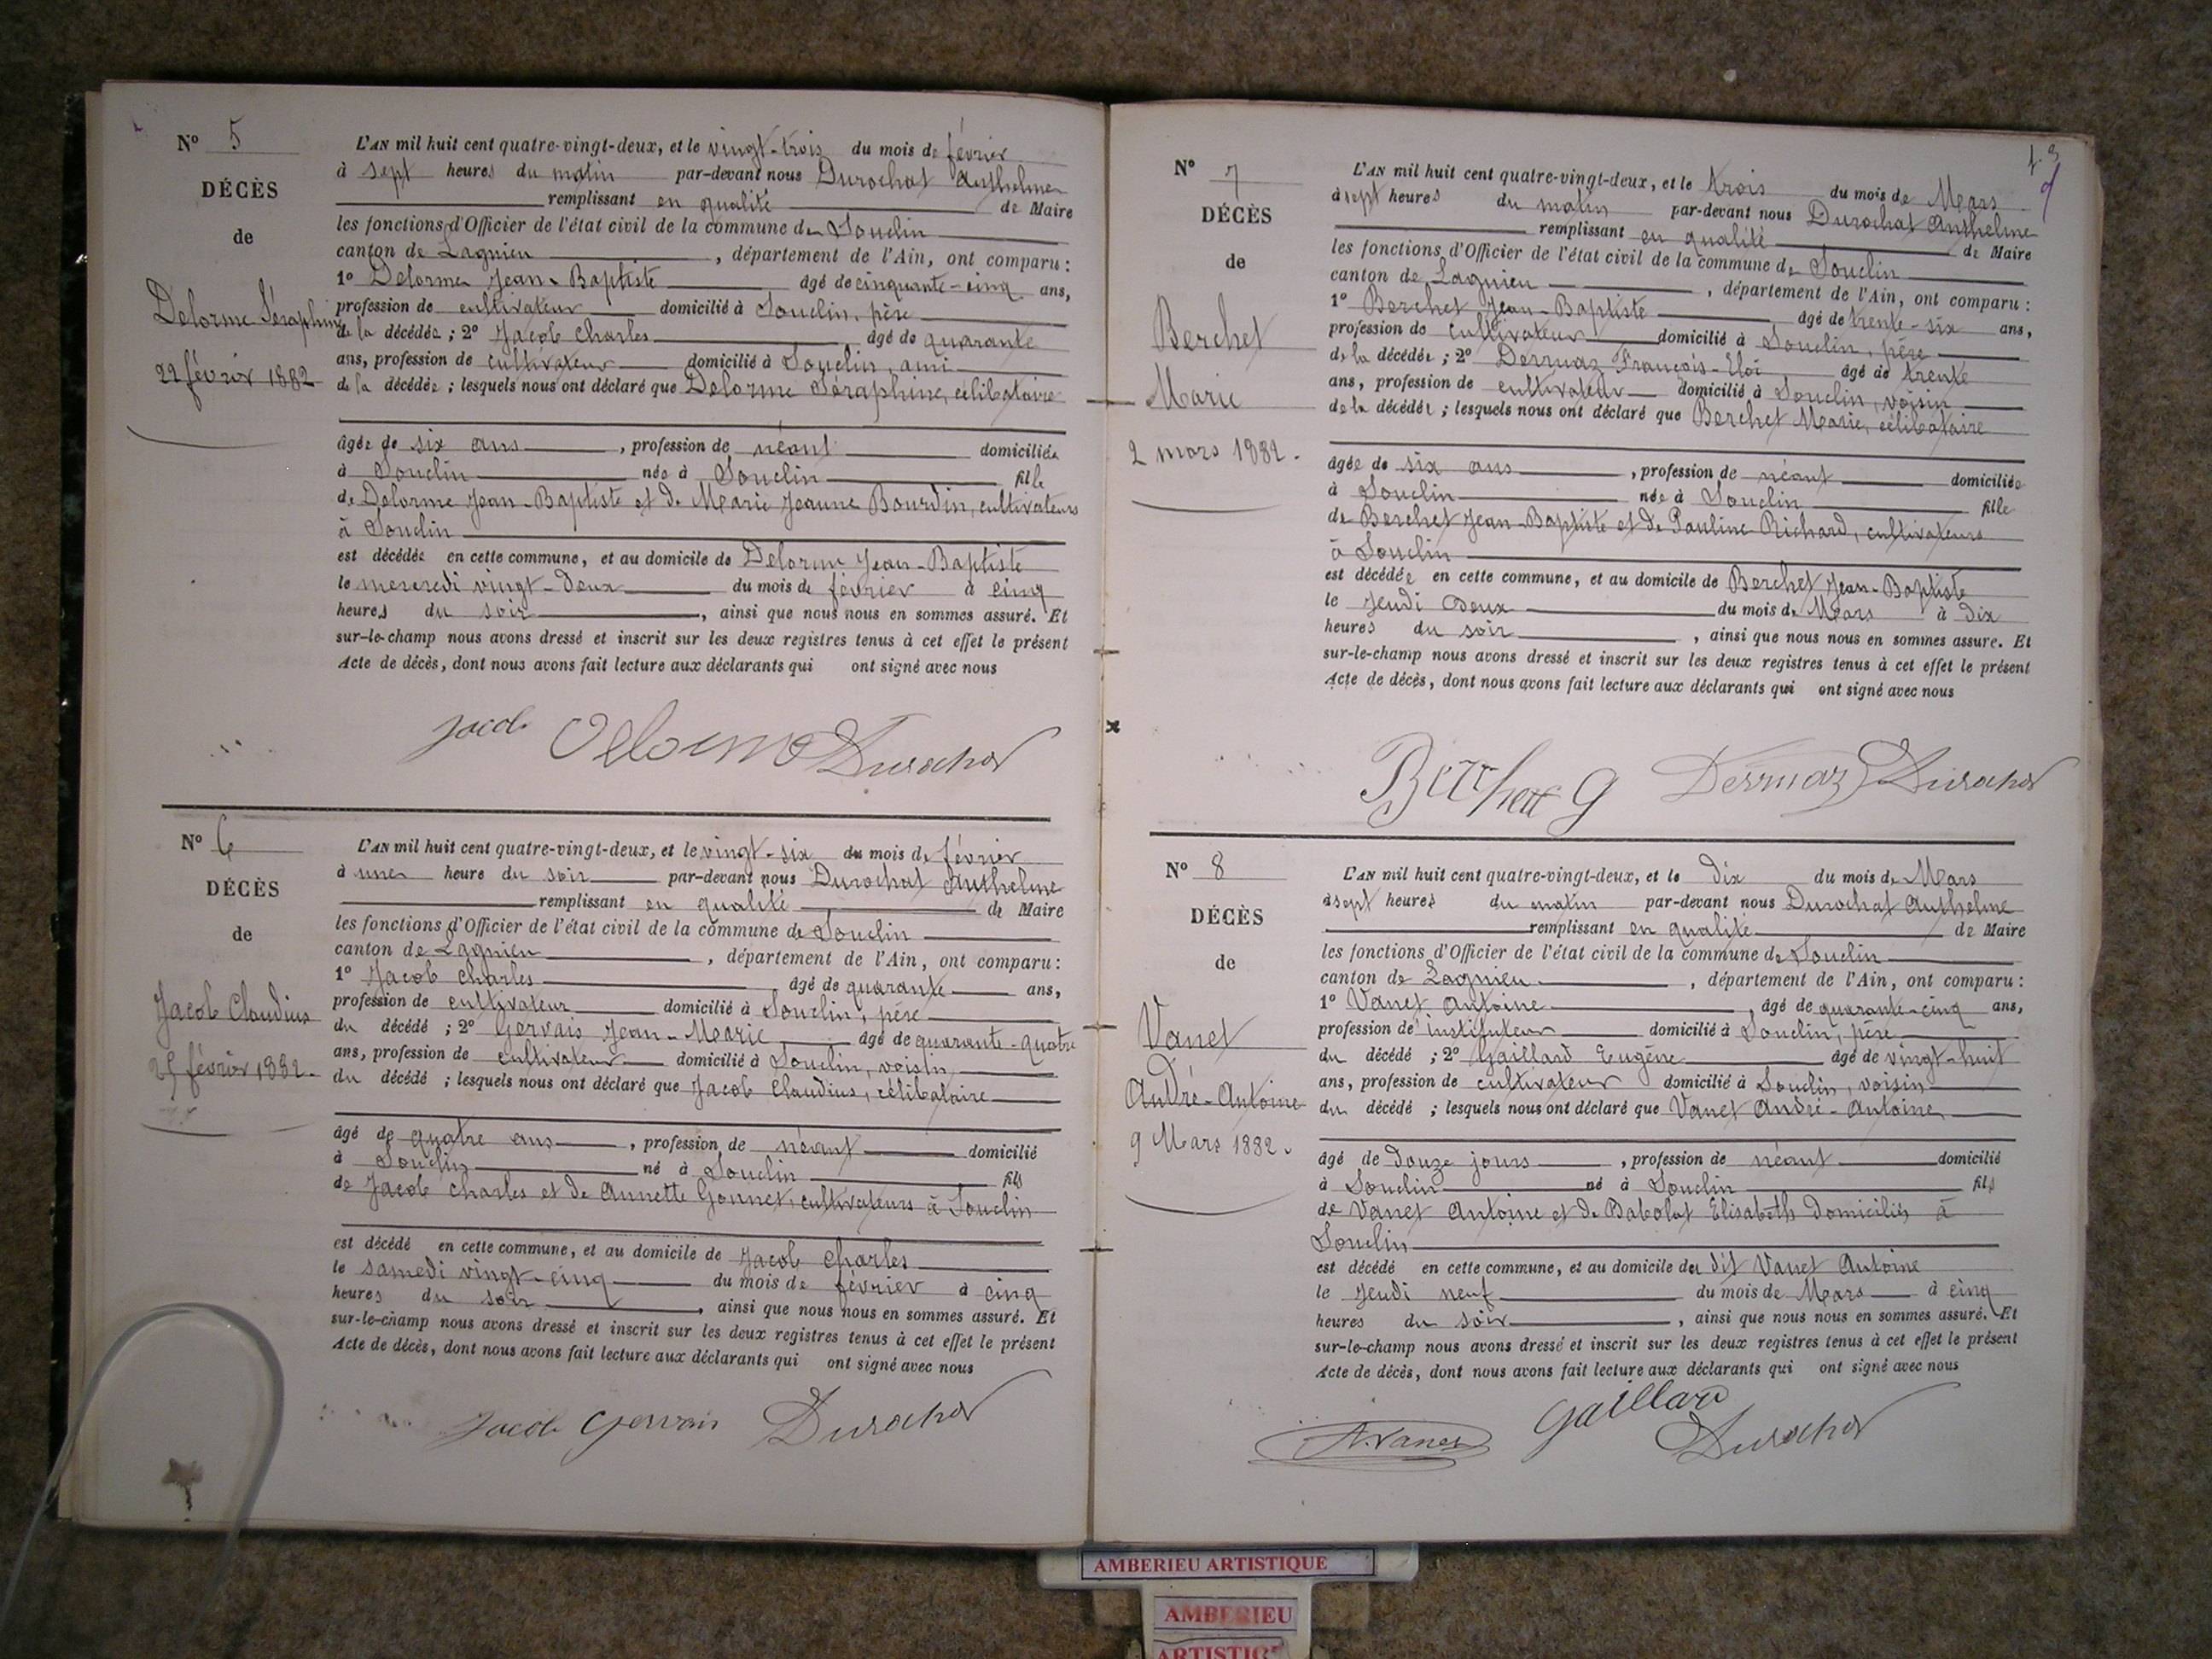 N° 5
DÉCÈS
de
Delorme Séraphine
22 février 1882
L'AN mil huit cent quatre-vingt-deux, et le vingt-trois du mois de février
à sept heures du matin par-devant nous Durochat Anthelme
remplissant en qualité de Maire
les fonctions d'Officier de l'état civil de la commune de Souclin
canton de Lagnieu, département de l'Ain, ont comparu :
1° Delorme Jean-Baptiste âgé de cinquante-cinq ans,
profession de cultivateur domicilié à Souclin, père
de la décédée ; 2° Jacob Charles âgé de quarante
ans, profession de cultivateur domicilié à Souclin, ami
de la décédée ; lesquels nous ont déclaré que Delorme Séraphine, célibataire
âgée de six ans, profession de néant domiciliée
à Souclin née à Souclin fille
de Delorme Jean-Baptiste et de Marie Jeanne Bourdin, cultivateurs
à Souclin
est décédée en cette commune, et au domicile de Delorme Jean-Baptiste
le mercredi vingt-deux du mois de février à cinq
heures du soir, ainsi que nous nous en sommes assuré. Et
sur-le-champ nous avons dressé et inscrit sur les deux registres tenus à cet effet le présent
Acte de décès, dont nous avons fait lecture aux déclarants qui ont signé avec nous
Jacob Delorme Durochat
N° 6
DÉCÈS
de
Jacob Claudius
25 février 1882.
L'AN mil huit cent quatre-vingt-deux, et le vingt-six du mois de février
à une heure du soir par-devant nous Durochat Anthelme
remplissant en qualité de Maire
les fonctions d'Officier de l'état civil de la commune de Souclin
canton de Lagnieu, département de l'Ain, ont comparu :
1° Jacob Charles âgé de quarante ans,
profession de cultivateur domicilié à Souclin, père
du décédé ; 2° Gervais Jean-Marie âgé de quarante-quatre
ans, profession de cultivateur domicilié à Souclin, voisin
du décédé ; lesquels nous ont déclaré que Jacob Claudius, célibataire
âgé de quatre ans, profession de néant domicilié
à Souclin né à Souclin fils
de Jacob Charles et de Annette Gonnet, cultivateurs à Souclin
est décédé en cette commune, et au domicile de Jacob Charles
le samedi vingt-cinq du mois de février à cinq
heures du soir, ainsi que nous nous en sommes assuré. Et
sur-le-champ nous avons dressé et inscrit sur les deux registres tenus à cet effet le présent
Acte de décès, dont nous avons fait lecture aux déclarants qui ont signé avec nous
Jacob Gervais Durochat
N° 7
DÉCÈS
de
Berchet
Marie
2 mars 1882.
L'AN mil huit cent quatre-vingt-deux, et le trois du mois de Mars
à sept heures du matin par-devant nous Durochat Anthelme
remplissant en qualité de Maire
les fonctions d'Officier de l'état civil de la commune de Souclin
canton de Lagnieu, département de l'Ain, ont comparu :
1° Berchet Jean-Baptiste âgé de trente-six ans,
profession de cultivateur domicilié à Souclin, père
de la décédée ; 2° Derruaz François-Eloi âgé de trente
ans, profession de cultivateur domicilié à Souclin, voisin
de la décédée ; lesquels nous ont déclaré que Berchet Marie, célibataire
âgée de six ans, profession de néant domiciliée
à Souclin née à Souclin fille
de Berchet Jean-Baptiste et de Pauline Richard, cultivateurs
à Souclin
est décédée en cette commune, et au domicile de Berchet Jean-Baptiste
le Jeudi deux du mois de Mars à dix
heures du soir, ainsi que nous nous en sommes assuré. Et
sur-le-champ nous avons dressé et inscrit sur les deux registres tenus à cet effet le présent
Acte de décès, dont nous avons fait lecture aux déclarants qui ont signé avec nous
Derruaz Durochat
N° 8
DÉCÈS
de
Vanet
André-Antoine
9 Mars 1882.
L'AN mil huit cent quatre-vingt-deux, et le dix du mois de Mars
à sept heures du matin par-devant nous Durochat Anthelme
remplissant en qualité de Maire
les fonctions d'Officier de l'état civil de la commune de Souclin
canton de Lagnieu, département de l'Ain, ont comparu :
1° Vanet Antoine, âgé de quarante-cinq ans,
profession de instituteur domicilié à Souclin, père
du décédé ; 2° Gaillard Eugène âgé de vingt-huit
ans, profession de cultivateur domicilié à Souclin, voisin
du décédé ; lesquels nous ont déclaré que Vanet André-Antoine
âgé de douze jours, profession de néant domicilié
à Souclin né à Souclin fils
de Vanet Antoine et de Babolat Elisabeth domiciliés à
Souclin
est décédé en cette commune, et au domicile du dit Vanet Antoine
le Jeudi neuf du mois de Mars à cinq
heures du soir, ainsi que nous nous en sommes assuré. Et
sur-le-champ nous avons dressé et inscrit sur les deux registres tenus à cet effet le présent
Acte de décès, dont nous avons fait lecture aux déclarants qui ont signé avec nous
A. Vanet Gaillard Durochat
AMBERIEU ARTISTIQUE
AMBERIEU